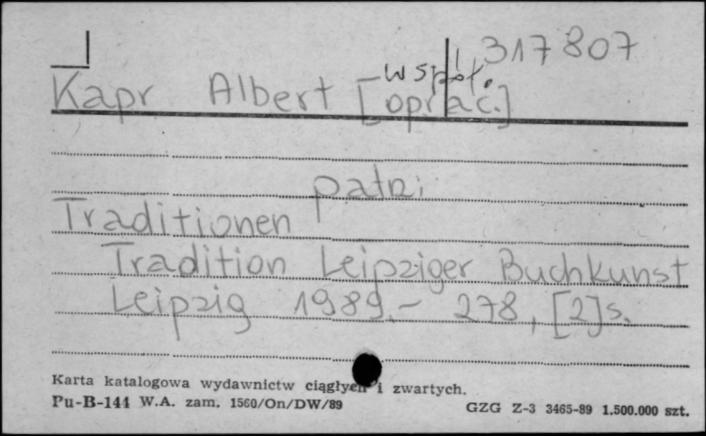 317807
Kapr Albert [współ.
oprac.]
patrz:
Traditionen
Tradition Leipziger Buchkunst
Leipzig 1989.- 278, [2]s.
Karta katalogowa wydawnictw ciągłych i zwartych.
Pu-B-144 W.A. zam. 1560/On/DW/89 GZG Z-3 3465-89 1.500.000 szt.